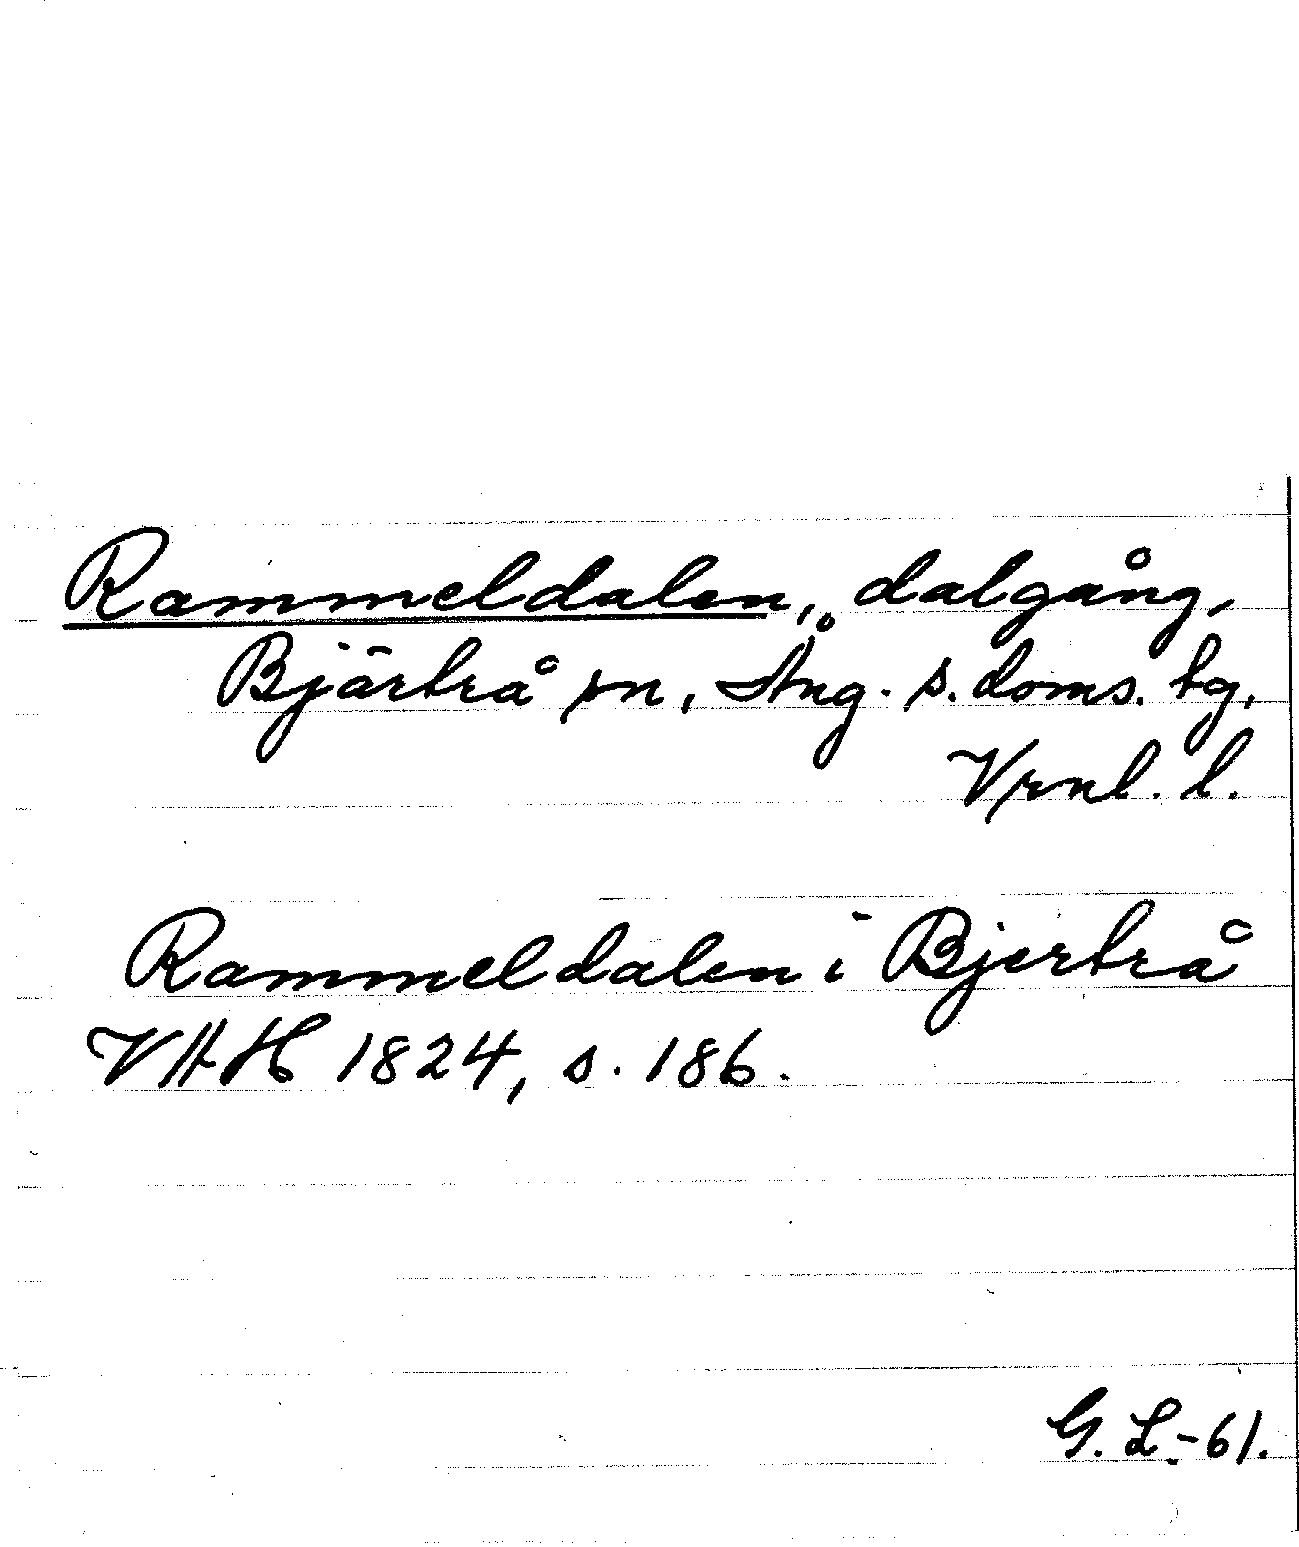 Rammeldalen, dalgång,
Bjärtrå sn, Ång. s. doms. tg,
Vrnl. l.
Rammeldalen i Bjertrå
VAH 1824, s. 186.
G. L. -61.